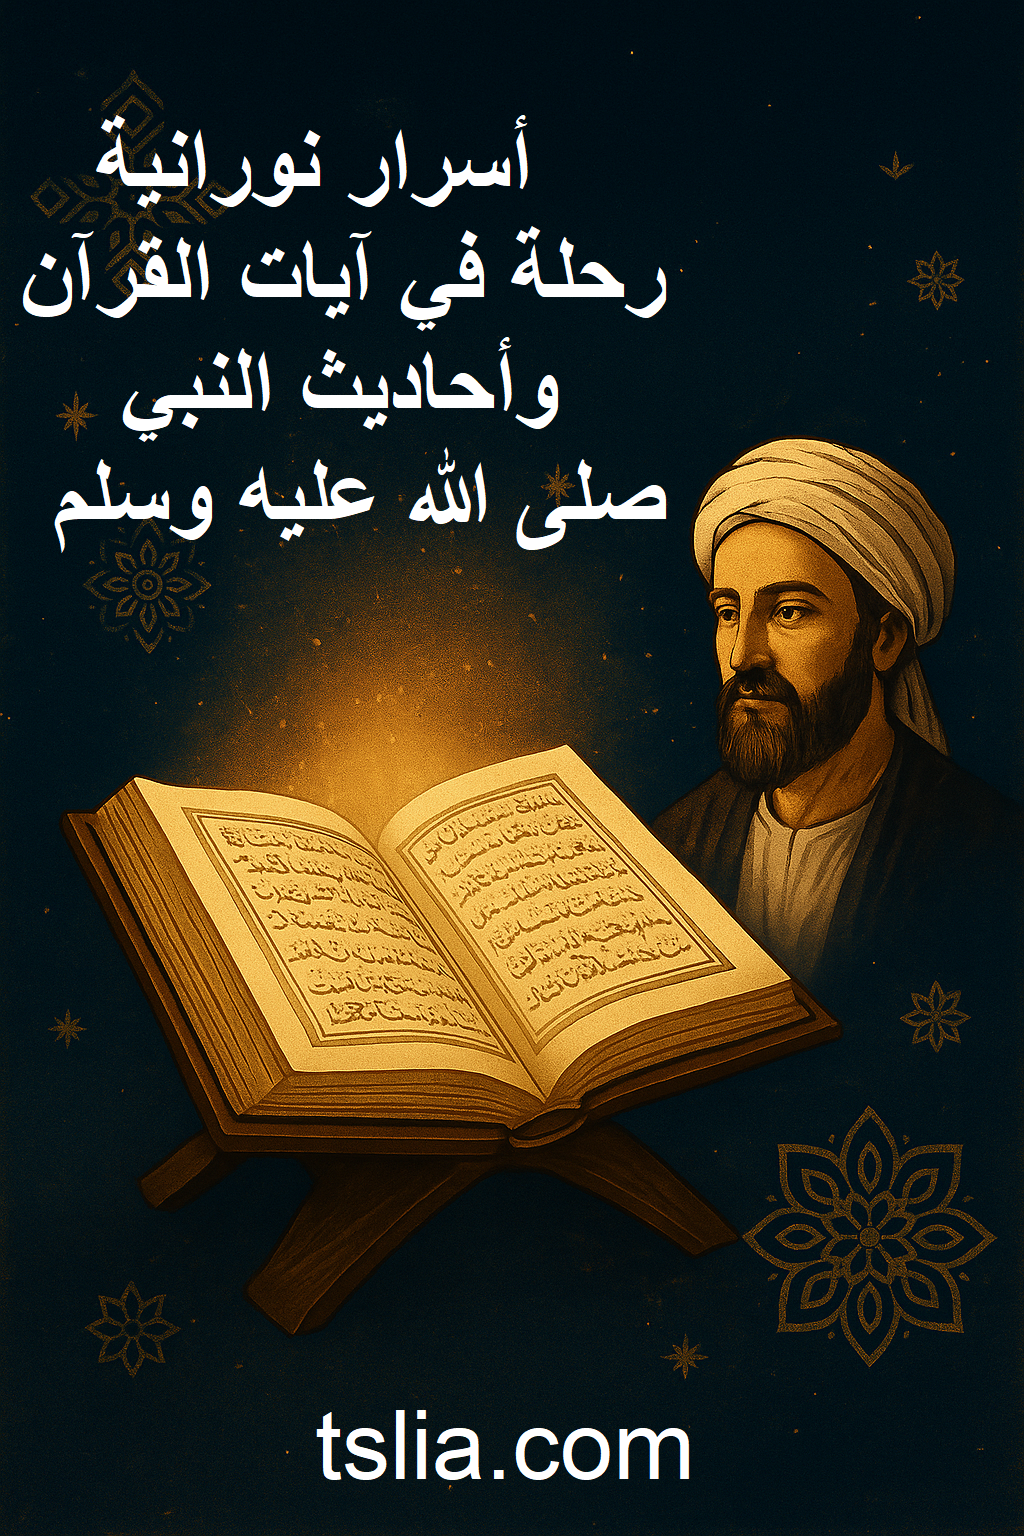 أسرار نورانية
رحلة في آيات القرآن
وأحاديث النبي
صلى الله عليه وسلم
tslia.com